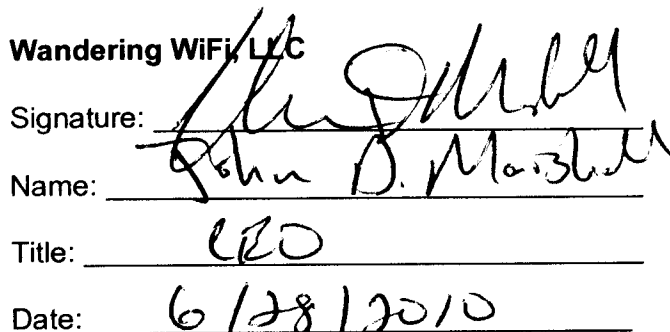 Wandering WiFi, LLC
Signature: John D Marshall
Name: John D. Marshall
Title: CEO
Date: 6/28/2010